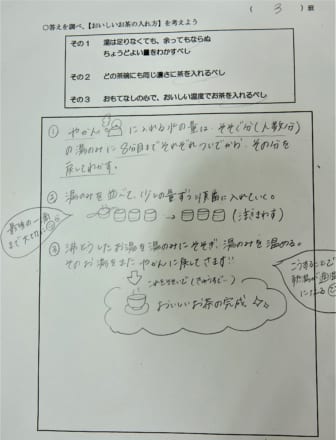 ( 3 ) 班
○答えを調べ、【おいしいお茶の入れ方】を考えよう
その1 湯は足りなくても、余ってもならぬ
ちょうどよい■をわかすべし
その2 どの茶碗にも同じ濃さに茶を入れるべし
その3 おもてなしの心で、おいしい温度でお茶を入れるべし
① やかん に入れる水の量は、そそぐ分(人数分)
の湯のみに8分目までそれぞれついでから、その分を
戻してわかす。
② 湯のみを並べて、少しの量ずつ順番に入れていく。
→ (注ぎまわす)
最後の一滴
まで大切に
③ 沸とうしたお湯を湯のみにそそぎ、湯のみを温める。
そのお湯をまたやかんに戻してさます!!
おいしいお茶の完成
こうすることで
適温
になる